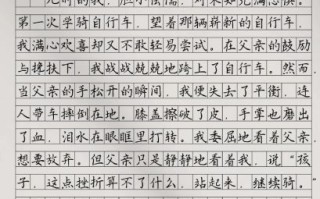 第一次学骑自行车，望着那辆崭新的自行车，我
满心欢喜却又不敢轻易尝试。在父亲的鼓励
与搀扶下，我战战兢兢地跨上了自行车。然而，
当父亲的手松开的瞬间，我便失去了平衡，连
人带车摔倒在地。膝盖擦破了皮，手掌也磨出
了血，泪水在眼眶里打转。我委屈地看着父亲，
想要放弃。但父亲只是静静地看着我，说“孩
子，这点挫折算不了什么，站起来，继续骑。”